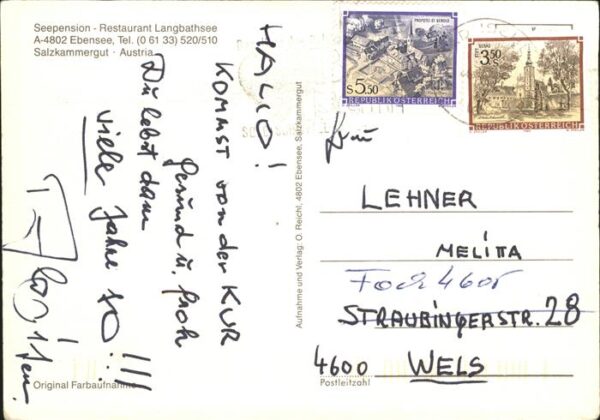 Seepension - Restaurant Langbathsee
A-4802 Ebensee, Tel. (0 61 33) 520/510
Salzkammergut · Austria
HALLO!
KOMMST von der KUR
gesund u. froh
Du lebst dann
viele Jahre so!!!
Original Farbaufnahme
Aufnahme und Verlag: O. Reichl, 4802 Ebensee, Salzkammergut
S 5,50
REPUBLIK ÖSTERREICH
3,50
REPUBLIK ÖSTERREICH
Frau
LEHNER
MELITTA
Foch 4605
STRAUBINGERSTR. 28
4600 WELS
Postleitzahl